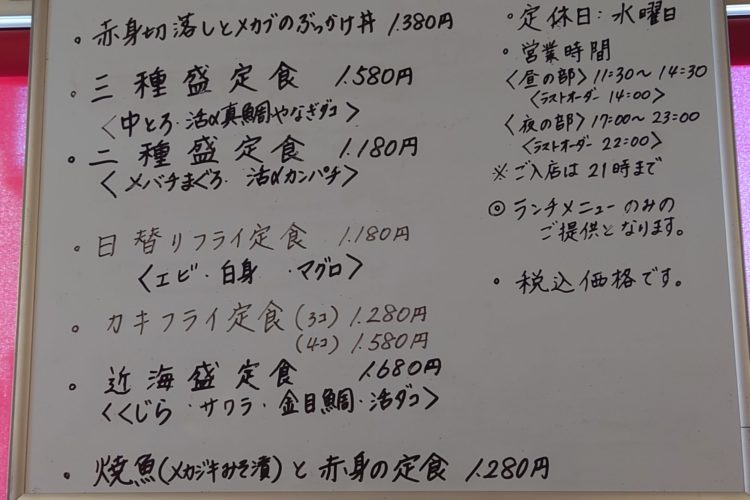 • 赤身切落しとメカブのぶっかけ丼 1.380円
• 三種盛定食 1.580円
〈中とろ・活〆真鯛やなぎダコ〉
• 二種盛定食 1.180円
〈メバチまぐろ・活〆カンパチ〉
• 日替りフライ定食 1.180円
〈エビ・白身・マグロ〉
• カキフライ定食(3コ) 1.280円
(4コ) 1.580円
• 近海盛定食 1.680円
〈くじら・サワラ・金目鯛・活ダコ〉
• 焼魚(メカジキみそ漬)と赤身の定食 1.280円
• 定休日:水曜日
• 営業時間
〈昼の部〉11:30~14:30
〈ラストオーダー 14:00〉
〈夜の部〉17:00~23:00
〈ラストオーダー 22:00〉
※ご入店は21時まで
◎ランチメニューのみの
ご提供となります。
• 税込価格です。